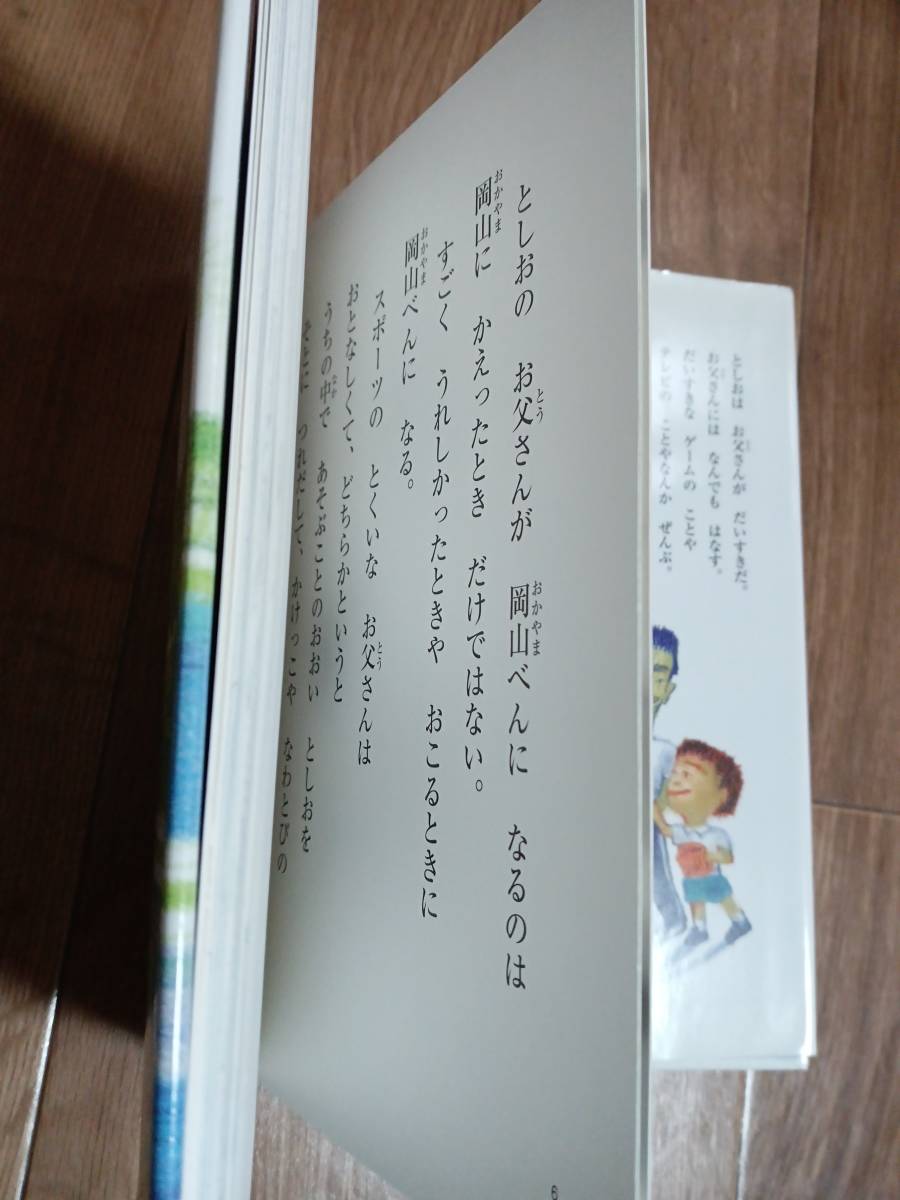 としおの　お父さんが　岡山べんに　なるのは
岡山に　かえったとき　だけではない。
すごく　うれしかったときや　おこるときに
岡山べんに　なる。
スポーツの　とくいな　お父さんは
おとなしくて、どちらかというと
うちの中で　あそぶことのおおい　としおを
そとに　つれだして、かけっこや　なわとびの
6
としおは　お父さんが　だいすきだ。
お父さんには　なんでも　はなす。
だいすきな　ゲームの　ことや
テレビの　ことやなんか　ぜんぶ。